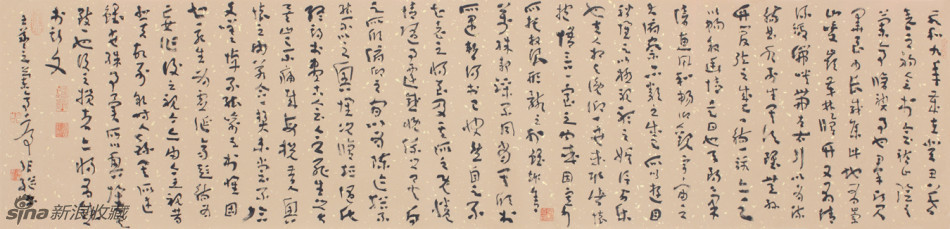 永和九年歲在癸丑暮
春之初會于會稽山陰之
蘭亭脩禊事也群賢
畢至少長咸集此地有崇
山峻嶺茂林脩竹又有清
流激湍映帶左右引以為流
觴曲水列坐其次雖無絲
竹管弦之盛一觴一詠亦足
以暢敘幽情是日也天朗氣
清惠風和暢仰觀宇宙之
大俯察品類之盛所以遊目
騁懷足以極視聽之娛信可樂
也夫人之相與俯仰一世或取諸懷
抱悟言一室之內或因寄
所託放浪形骸之外雖趣舍
萬殊靜躁不同當其欣於
所遇暫得於己快然自足不
知老之將至及其所之既惓
情隨事遷感慨係之矣向
之所欣俯仰之間以為陳迹猶
不能不以之興懷況脩短隨化
終期於盡古人云死生亦大矣
豈不痛哉每攬昔人興
感之由若合一契未嘗不臨
文嗟悼不能喻之於懷固
知一死生為虛誕齊彭殤為
妄作後之視今亦由今之視昔
悲夫故列敘時人錄其所述
雖世殊事異所以興懷其
致一也後之攬者亦將有感
於斯文
王羲之蘭亭序
sina 新浪收藏